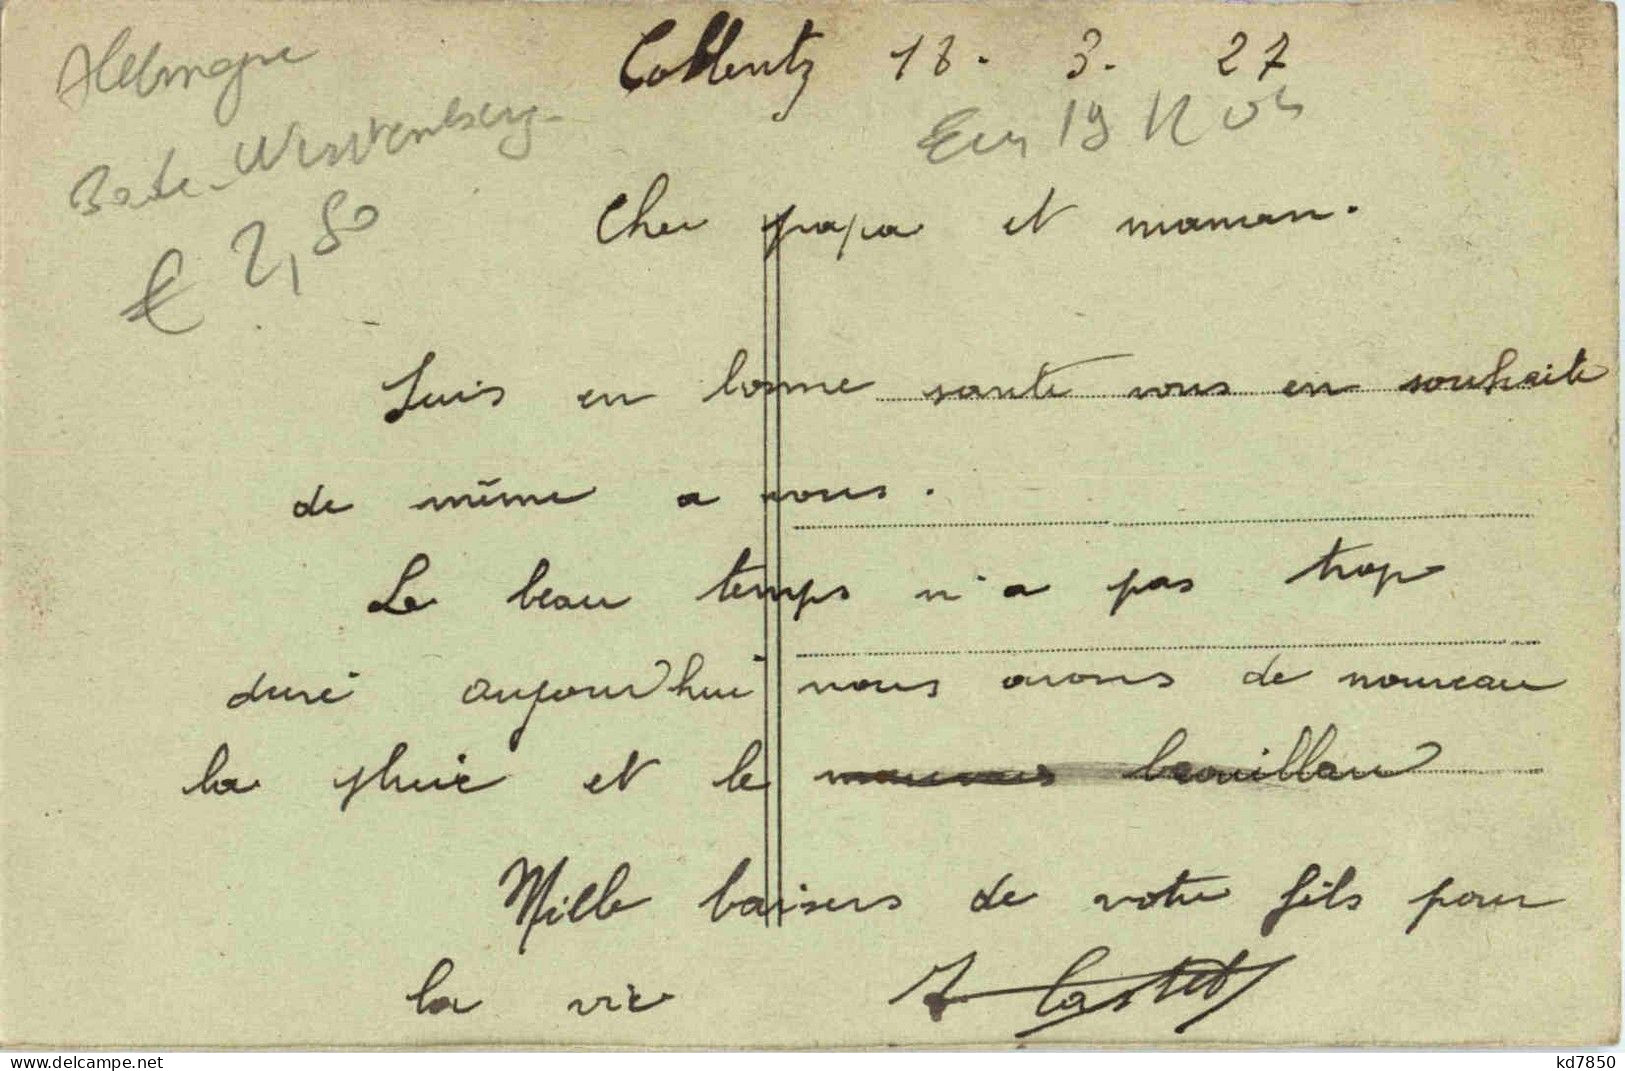 Allemagne
Coblentz 18. 3. 27
Bade-Wurtemberg.
19
€ 2,80
Cher papa et maman.
Suis en bonne santé vous en souhaite
de même a vous.
Le beau temps n'a pas trop
duré aujourd'hui nous avons de nouveau
la pluie et le mauvais brouillard
Mille baisers de votre fils pour
la vie
delcampe.net
kd7850